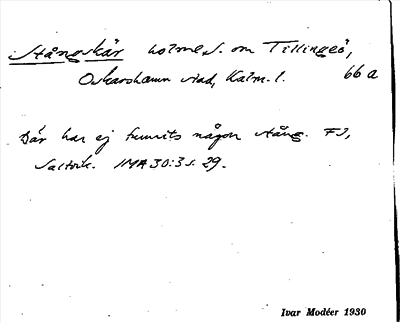 Stångskär holme S. om Tillingeö,
Oskarshamn stad, Kalm. l. 66 a
Där har ej funnits någon stång. FJ,
Saltvik. IMA 30:3 s. 29.
Ivar Modéer 1930